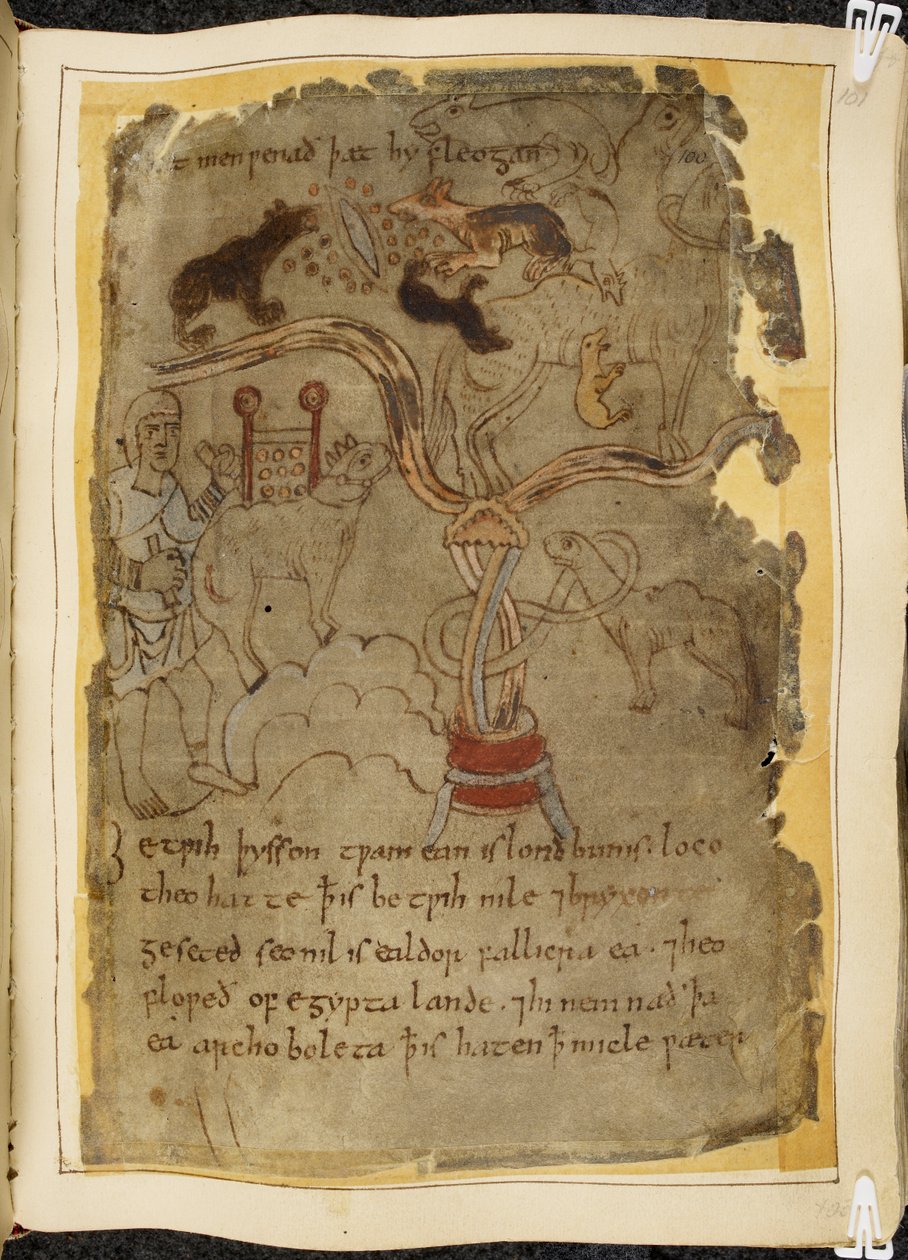 t men wenað þæt hy fleogan
100
101
Betwih þysson twam ean is londbunis · loco
theo hatte þ̵ is betwih nile ⁊ brixonte
geseted seo nil is ealdor fallicra ea · ⁊ heo
floweð of egypta lande · ⁊ hi nemnað þa
ea archoboleta þ̵ is haten þ̵ micle wæter